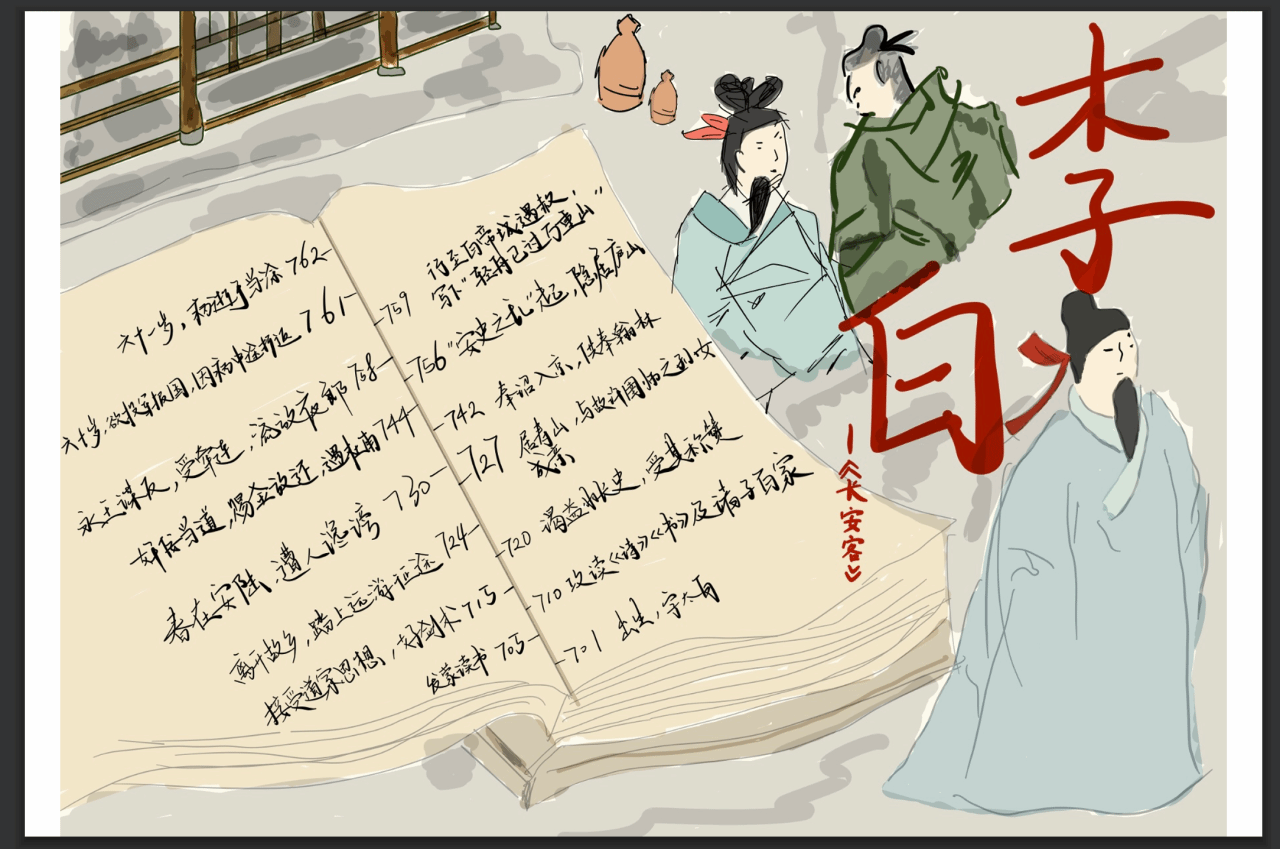 李白
—《长安客》
六十一岁，病逝于当涂 762
六十岁，欲投军报国，因病中途折返 761
永王谋反，受牵连，流放夜郎 758
奸臣当道，赐金放还，遇杜甫 744
春在安陆，遭人谗谤 730
离开故乡，踏上远游征途 724
接受道家思想，好剑术 715
发蒙读书 705
759 行至白帝城遇赦
写下“轻舟已过万重山”
756 “安史之乱”起，隐居庐山
742 奉诏入京，供奉翰林
727 居寿山，与故许圉师之孙女
成亲
720 谒益州长史，受其称赞
710 攻读《诗》《书》及诸子百家
701 出生，字太白